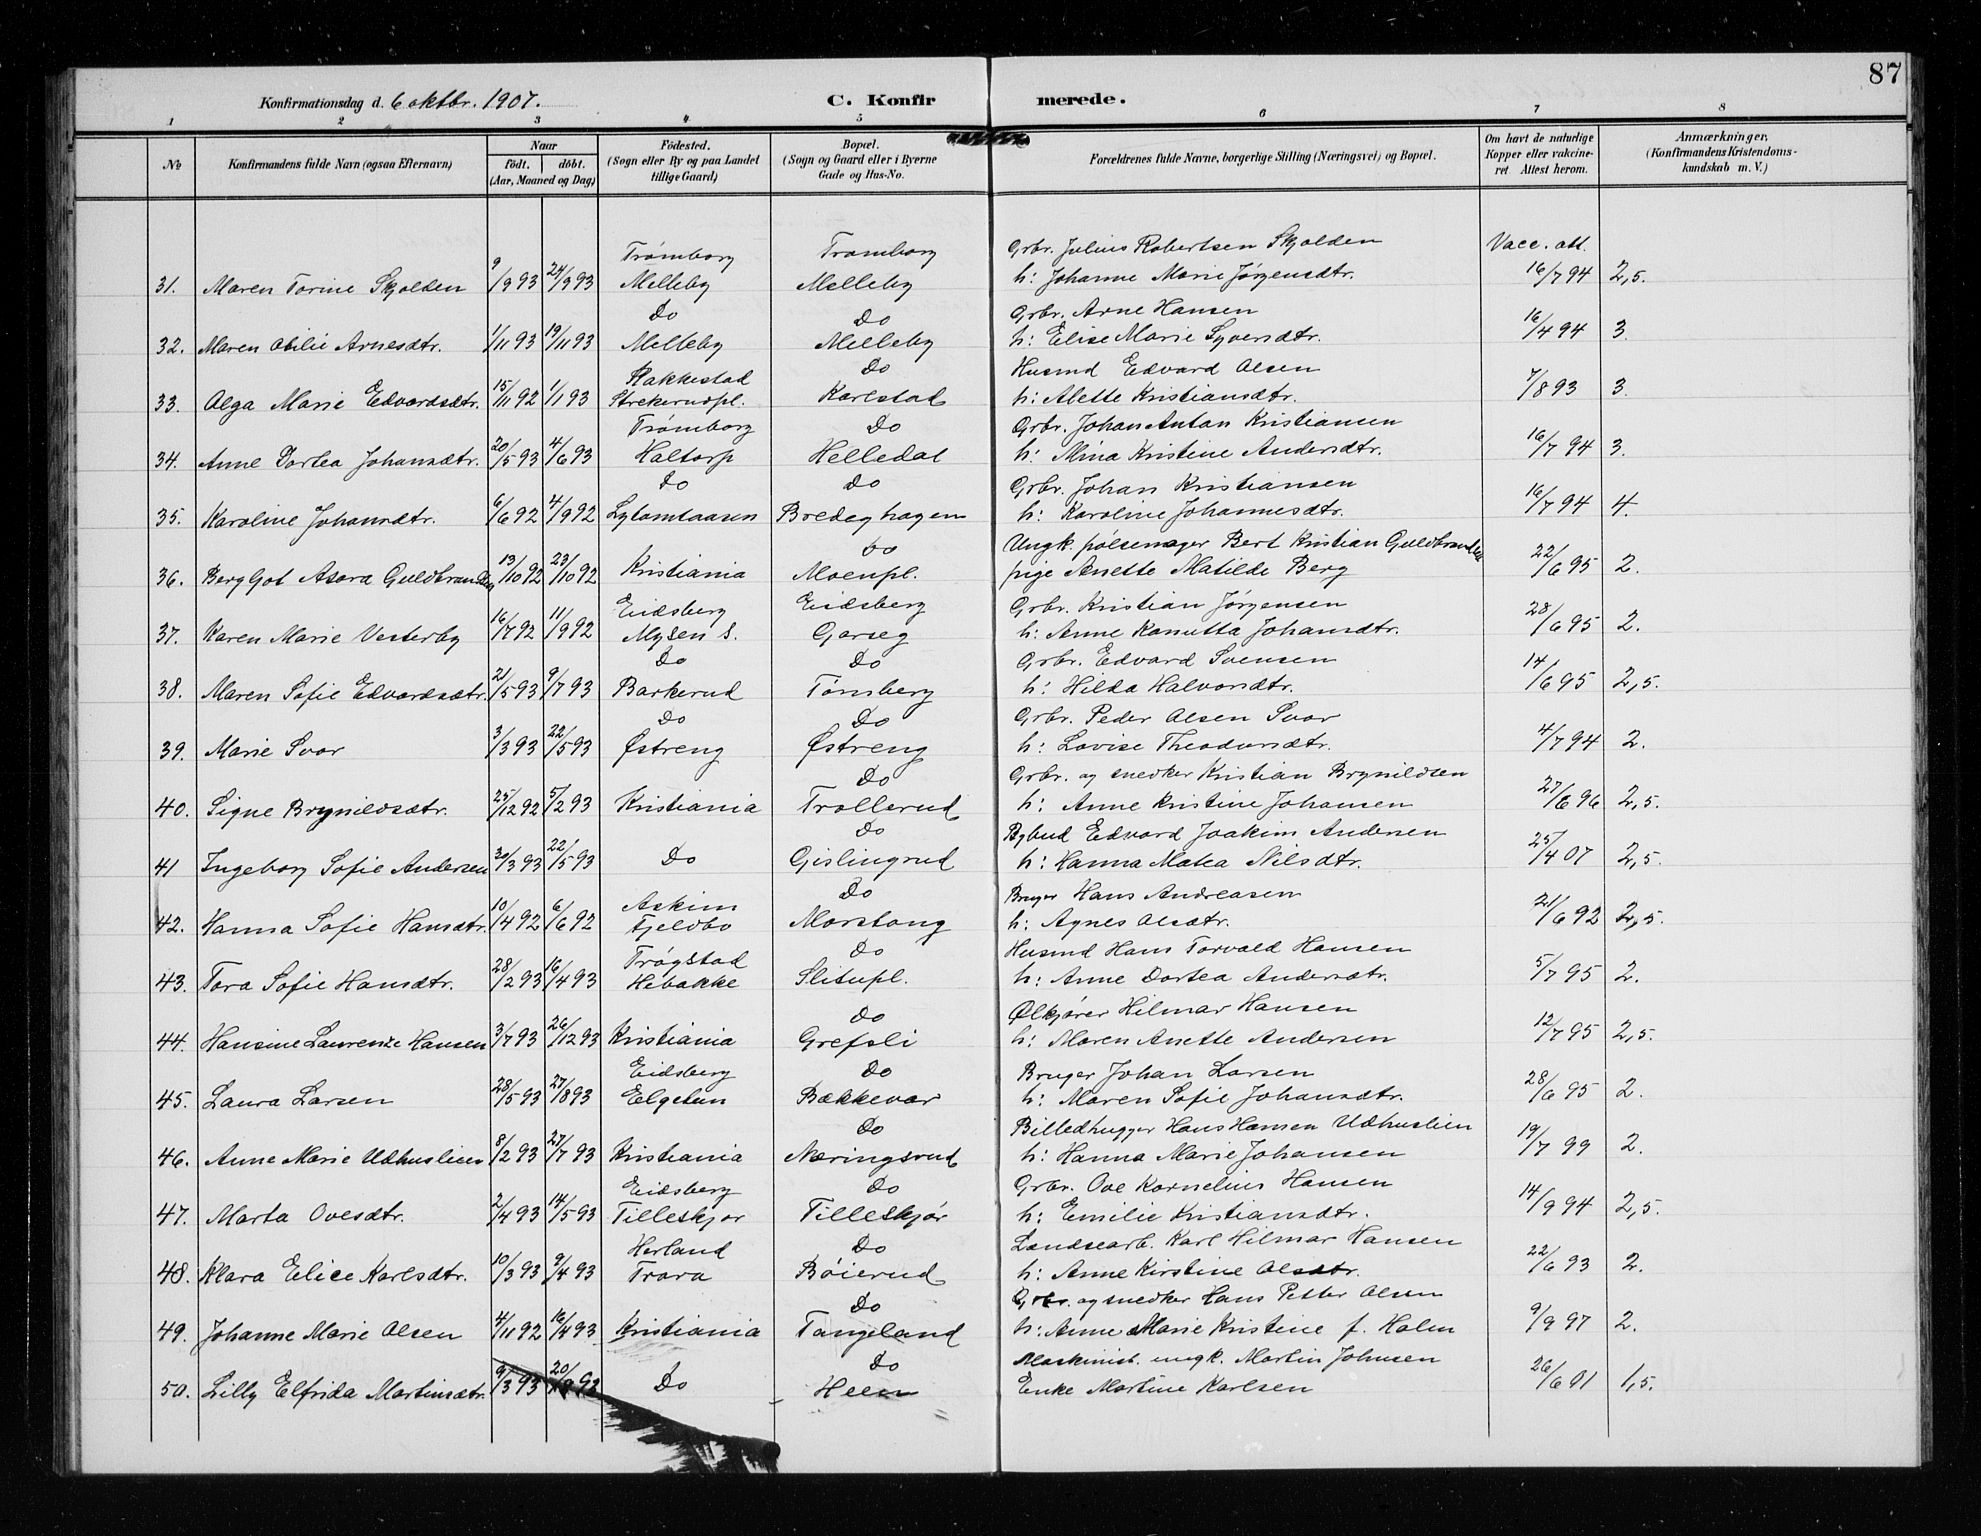 87
Konfirmationsdag d. 6 oktbr. 1907.
C. Konfirmerede.
1 2 3 4 5 6 7 8
No
Konfirmandens fulde Navn (ogsaa Efternavn)
Naar
födt. döbt.
(Aar, Maaned og Dag)
Födested.
(Sogn eller By og paa Landet
tillige Gaard)
Bopæl.
(Sogn og Gaard eller i Byerne
Gade og Hus-No.
Forældrenes fulde Navne, borgerlige Stilling (Næringsvei) og Bopæl.
Om havt de naturlige
Kopper eller vakcine-
ret. Attest herom.
Anmærkninger.
(Konfirmandens Kristendoms-
kundskab m. V.)
Trømborg Trømborg Grbr. Julius Robertsen Skjolden Vacc. att.
31. Maren Torine Skjolden 9/9 93 24/9 93 Melleby Melleby h: Johanne Marie Jørgensdtr. 16/7 94 2,5.
Do Do Grbr. Arne Hansen
32. Maren Otilie Arnesdtr. 1/11 93 19/11 93 Melleby Melleby h: Elise Marie Syversdtr. 16/4 94 3.
Rakkestad Do Husmd Edvard Olsen
33. Olga Marie Edvardsdtr. 15/11 92 1/1 93 Strekerudpl. Karlstad h: Alette Kristiansdtr. 7/8 93 3.
Trømborg Do Grbr. Johan Anton Kristiansen
34. Anne Dortea Johansdtr. 20/5 93 4/6 93 Haltorp Helledal h: Mina Kristine Andersdtr. 16/7 94 3.
Do Do Grbr. Johan Kristiansen
35. Karoline Johansdtr. 6/6 92 4/9 92 Lytomtaasen Bredeghagen h: Karoline Johannesdtr. 16/7 94 4.
Do Ungk. pølsemager Bert Kristian Guldbrandsen
36. Bergljot Asora Guldbrandsen 13/10 92 23/10 92 Kristiania Moenpl. pige Anette Matilde Berg 22/6 95 2.
Eidsberg Eidsberg Grbr. Kristian Jørgensen
37. Karen Marie Vesterby 16/7 92 11/9 92 Mysen s. Garseg h: Anne Kanutta Johansdtr. 28/6 95 2.
Do Do Grbr. Edvard Svensen
38. Maren Sofie Edvardsdtr. 21/5 93 9/7 93 Barkerud Tømberg h: Hilda Halvorsdtr. 14/6 95 2,5.
Do Do Grbr. Peder Olsen Svor
39. Marie Svor 3/3 93 22/5 93 Østreng Østreng h: Lovise Theodorsdtr. 4/7 94 2.
Do Grbr. og snedker Kristian Brynildsen
40. Signe Brynildsdtr. 25/12 92 5/2 93 Kristiania Trollerud h: Anne Kristine Johansen 27/6 96 2,5.
Do Bybud Edvard Joakim Andersen
41 Ingeborg Sofie Andersen 30/3 93 22/5 93 Do Gislingrud h: Hanna Matea Nilsdtr. 25/4 07 2,5.
Askim Do Bruger Hans Andreasen
42. Hanna Sofie Hansdtr. 10/4 92 6/6 92 Fjeldbo Morstong h: Agnes Olsdtr. 21/6 92 2,5.
Trøgstad Do Husmd Hans Torvald Hansen
43. Tora Sofie Hansdtr. 28/2 93 16/4 93 Hebakke Slitupl. h: Anne Dortea Andersdtr. 5/7 95 2.
Do Ølkjører Hilmar Hansen
44. Hansine Laurenze Hansen 3/7 93 26/12 93 Kristiania Grefsli h: Maren Anette Andersen 12/7 95 2,5.
Eidsberg Do Bruger Johan Larsen
45. Laura Larsen 28/5 93 27/8 93 Elgetun Bækkevar h: Maren Sofie Johansdtr. 28/6 95 2.
Do Billedhugger Hans Hansen Udhuslien
46. Anne Marie Udhuslien 8/2 93 27/7 93 Kristiania Næringsrud h: Hanna Marie Johansen 19/7 99 2.
Eidsberg Do Grbr. Ove Kornelius Hansen
47. Marta Ovesdtr. 2/4 93 14/5 93 Tilleskjør Tilleskjør h: Emilie Kristiansdtr. 14/9 94 2,5.
Herland Do Landsearb. Karl Hilmar Hansen
48. Klara Elise Karlsdtr. 10/3 93 9/4 93 Trara Bøierud h: Anne Kirstine Olsdtr. 22/6 93 2.
Do Grbr. og snedker Hans Petter Olsen
49. Johanne Marie Olsen 4/11 92 16/4 93 Kristiania Tangeland h: Anne Marie Kristine f. Holm 9/9 97 2.
Do Maskinist. ungk. Martin Johnsen
50. Lilly Elfrida Martinsdtr. 9/3 93 20/8 93 Do Heen Enke Martine Karlsen 26/6 01 1,5.